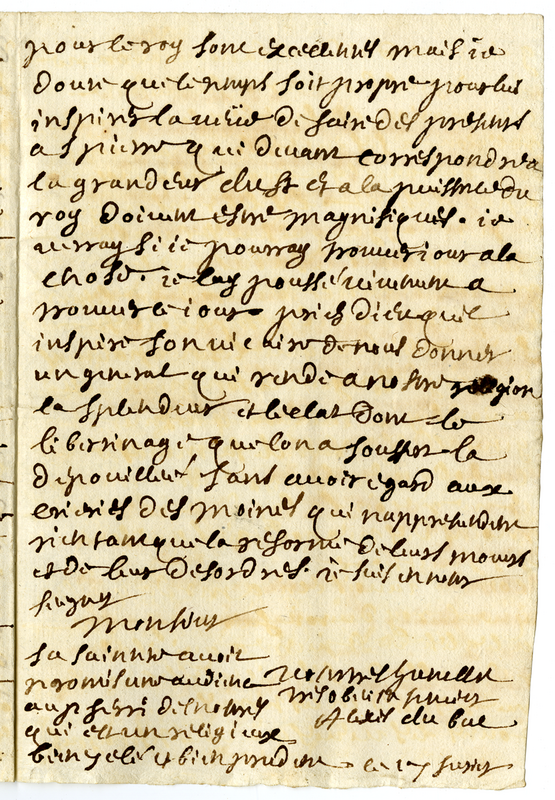 pour le roy sont excellentes mais ie
doute que le temps soit propre pour lui
inspirer la veüe de faire des presents
a s pierre qui devant correspondre a
la grandeur du st et a la puissance du
roy doivent estre magnifiques. ie
verray si ie pourray trouver iour a la
chose. ie lay poussé vivement a
trouver le iour priez dieu quil
inspire son vicaire de nous donner
un general qui rende a nostre religion
la splendeur et leclat dont le
libertinage que lon a souffert la
depouilleé sans avoir egard aux
crieries des moines qui napprehendent
rien tant que la reforme de leurs moeurs
et de leur desordres. ie suis en nostre
seigneur
Monsieur
sa sainteté avoit
promis une audience
au p herri des nostres
qui est un religieux
bien zelé et bien prudent
vostre tres humble
tres obeissant serviteur
Alexis du buc
le 17 fevrier